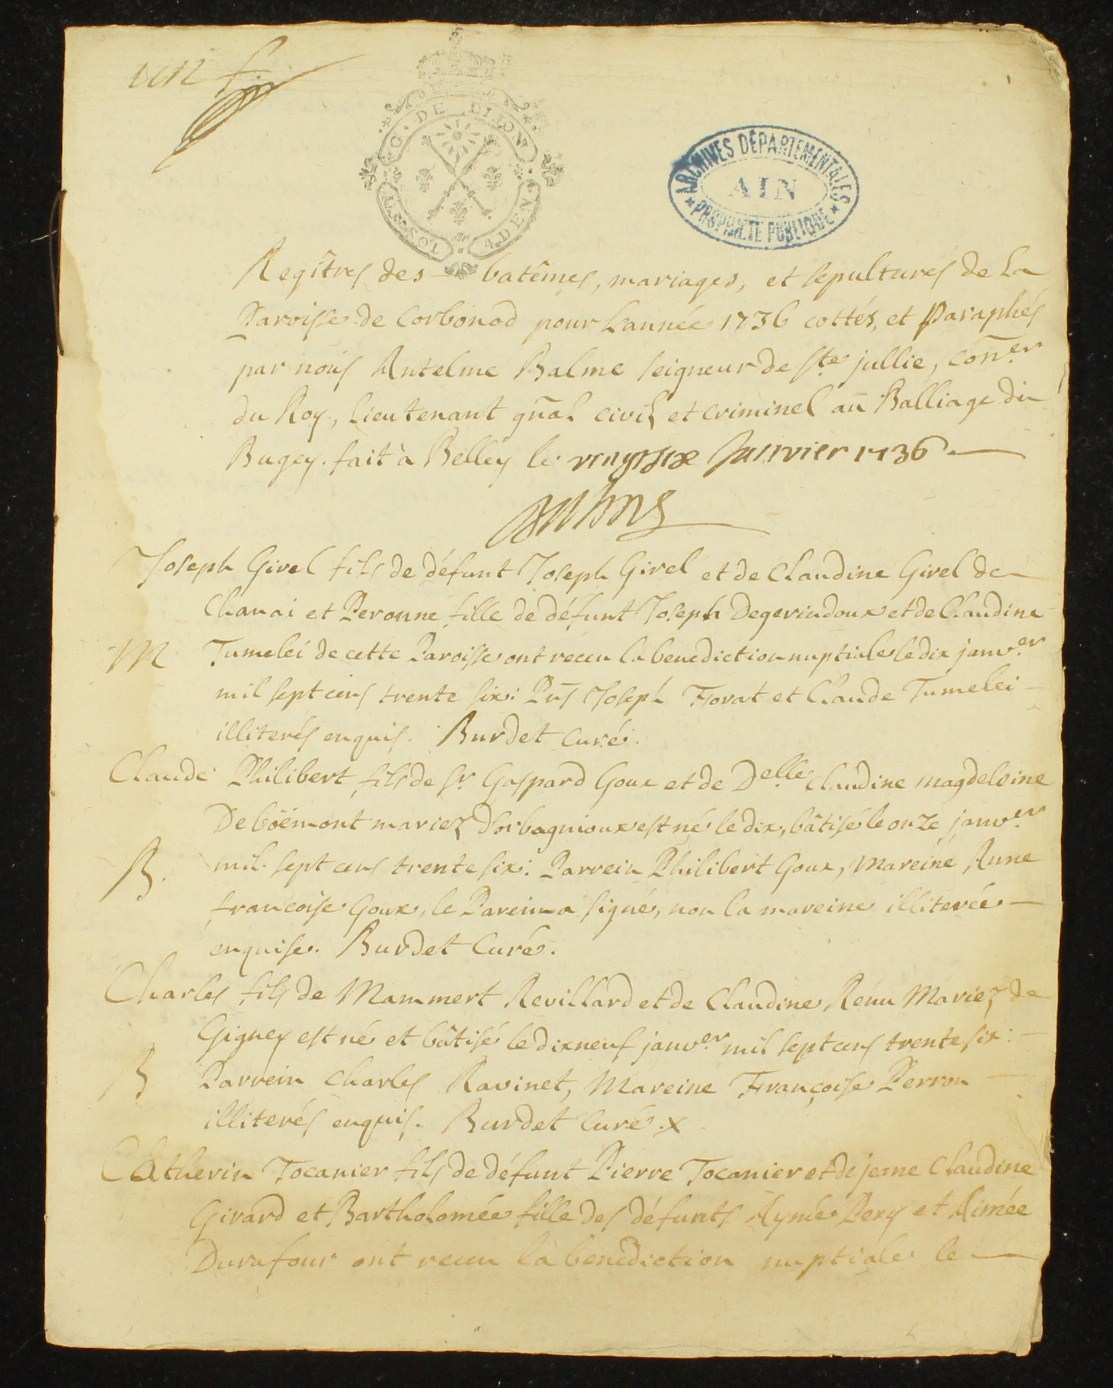 G. DE DIJON
U. SOL 4. DEN
ARCHIVES DÉPARTEMENTALES
AIN
PROPRIÉTÉ PUBLIQUE
Regîtres des batêmes, mariages, et sepultures de La
Paroisse de Corbonod pour L'année 1736 cottés, et Paraphés
par nous Antelme Balme seigneur de Ste jullie, Coner
du Roy, Lieutenant gñal civil et criminel aû Balliage du
Bugey. fait à Belley le vingtsix Janvier 1736
Joseph Girel fils de défunt Joseph Girel et de Claudine Girel de
Chanai et Peronne fille de défunt Joseph Degerindoux et de Claudine
M Tumelei de cette Paroisse ont receu la benediction nuptiale le dix janver
mil sept cens trente six: Pñs Joseph Forat et Claude Tumelei
illiterés enquis. Burdet Curé.
Claude Philibert fils de Sr Gaspard Goux et de Delle Claudine magdeleine
De böémont mariez d'orbagnioux est né le dix, bâtisé le onze janver
B. mil sept cens trente six: Parrein Philibert Goux, Mareine Anne
françoise Goux, le Parein a signé, non la mareine illiterée
enquise. Burdet Curé.
Charles fils de Mammert Revillard et de Claudine Rénu Mariez de
Gignez est né et bâtisé le dixneuf janver mil sept cens trente six:
B Parrein Charles Ravinet, Mareine Françoise Perron
illiterés enquis. Burdet Curé. x
Catherin Tocanier fils de défunt Pierre Tocanier et de jeme Claudine
Girard et Bartholomée fille des défunts Aymé Pery et Aimée
Durafour ont receu la benediction nuptiale le